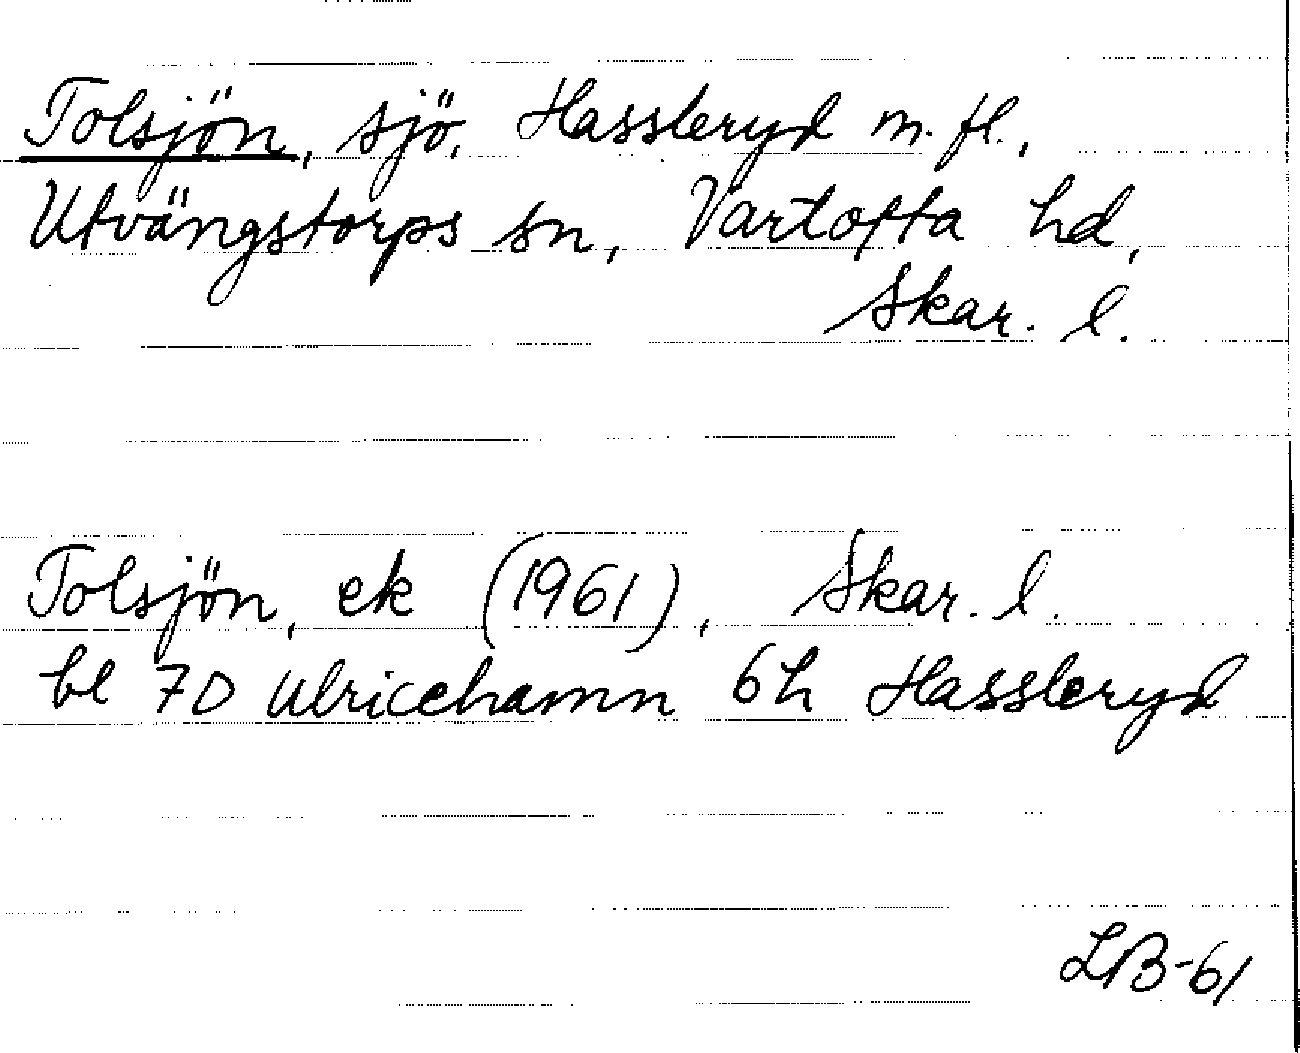 Tolsjön, sjö, Hassleryd m. fl.,
Utvängstorps sn, Vartofta hd,
Skar. l.
Tolsjön, ek (1961), Skar. l.
bl 7D Ulricehamn 6h Hassleryd
LB-61